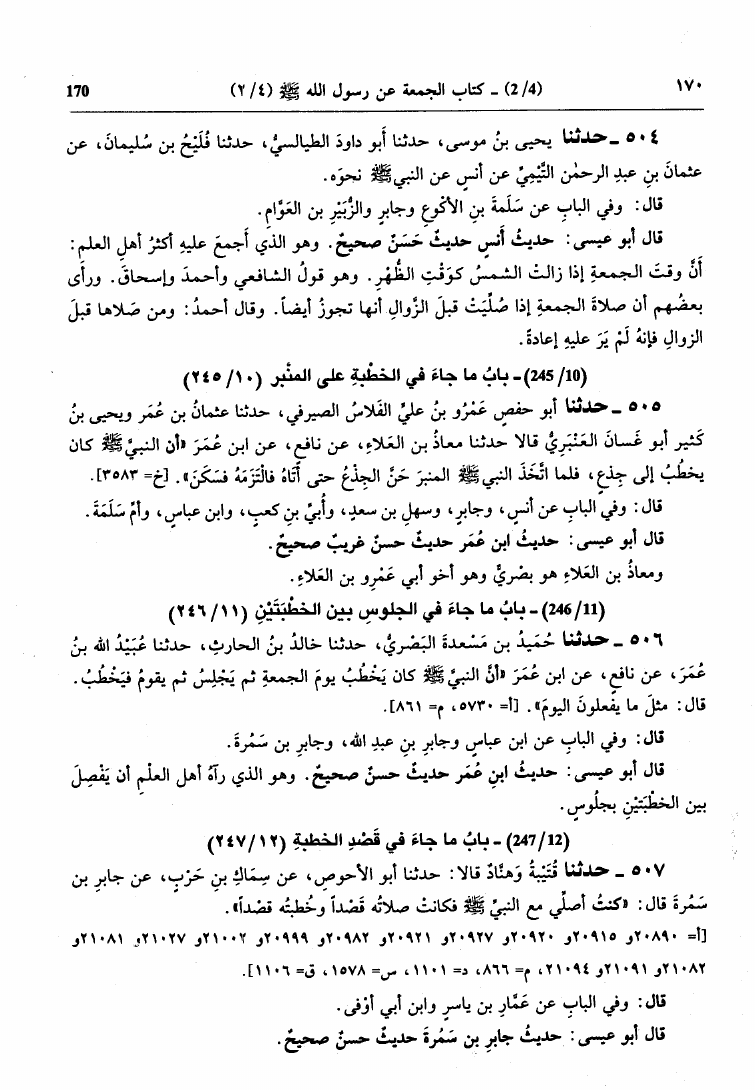 ١٧٠ (2/4) ـ كتاب الجمعة عن رسول الله ﷺ (٢/٤) 170
٥٠٤ ـ حدثنا يحيى بنُ موسى، حدثنا أَبو داودَ الطيالسيُّ، حدثنا فُلَيْحُ بن سُليمانَ، عن
عثمانَ بنِ عبدِ الرحمٰن التَّيْمِيِّ عن أنسٍ عن النبيِّ ﷺ نحوَه.
قال: وفي البابِ عن سَلَمةَ بنِ الأكْوعِ وجابرٍ والزُّبَيْرِ بن العَوَّامِ.
قال أبو عيسى: حديثُ أَنسٍ حديثٌ حَسَنٌ صحيحٌ. وهو الذي أَجمعَ عليهِ أكثرُ أهلِ العلمِ:
أنَّ وقتَ الجمعةِ إذا زالتْ الشمسُ كوَقْتِ الظُّهْرِ. وهو قولُ الشافعي وأحمدَ وإسحاقَ. ورأى
بعضُهم أن صلاةَ الجمعةِ إذا صُلِّيَتْ قبلَ الزَّوالِ أنها تجوزُ أيضاً. وقال أحمدُ: ومن صَلاها قبلَ
الزوالِ فإنهُ لَمْ يَرَ عليهِ إعادةً.
(245/10) ـ بابُ ما جاءَ في الخطْبةِ على المنْبر (٢٤٥/١٠)
٥٠٥ ـ حدثنا أبو حفصٍ عَمْرُو بنُ عليٍّ الفَلاسُ الصيرفي، حدثنا عثمانُ بن عُمَر ويحيى بنُ
كَثير أبو غَسانَ العَنْبَرِيُّ قالا حدثنا معاذُ بن العَلاءِ، عن نافعٍ، عن ابن عُمَرَ «أن النبيَّ ﷺ كان
يخطُبُ إلى جِذعٍ، فلما اتَّخَذَ النبي ﷺ المنبرَ حَنَّ الجِذْعُ حتى أَتَاهُ فالْتَزَمَهُ فسَكَنَ». [خ= ٣٥٨٣].
قال: وفي البابِ عن أنسٍ، وجابرٍ، وسهلِ بن سعدٍ، وأُبيِّ بنِ كعبٍ، وابن عباسٍ، وأمِّ سَلَمَةَ.
قال أبو عيسى: حديثُ ابن عُمَر حديثٌ حسنٌ غريبٌ صحيحٌ.
ومعاذُ بن العَلاءِ هو بصْريٌّ وهو أخو أبي عَمْرِو بن العَلاءِ.
(246/11) ـ بابُ ما جاءَ في الجلوسِ بين الخطْبَتَيْنِ (٢٤٦/١١)
٥٠٦ ـ حدثنا حُمَيدُ بن مَسْعدةَ البَصْريُّ، حدثنا خالدُ بنُ الحارثِ، حدثنا عُبَيْدُ الله بنُ
عُمَرَ، عن نافعٍ، عن ابن عُمَرَ «أنَّ النبيَّ ﷺ كان يَخْطُبُ يومَ الجمعةِ ثم يَجْلِسُ ثم يقومُ فيَخْطُبُ.
قال: مثلَ ما يفعلونَ اليومَ». [أ= ٥٧٣٠، م= ٨٦١].
قال: وفي الباب عن ابن عباسٍ وجابرِ بنِ عبدِ الله، وجابرِ بن سَمُرةَ.
قال أبو عيسى: حديثُ ابنِ عُمَر حديثٌ حسنٌ صحيحٌ. وهو الذي رآهُ أهل العلْمِ أن يَفْصِلَ
بين الخطْبَتَيْنِ بجلُوسٍ.
(247/12) ـ بابُ ما جاءَ في قَصْدِ الخطبةِ (٢٤٧/١٢)
٥٠٧ ـ حدثنا قُتَيْبةُ وَهنَّادٌ قالا: حدثنا أبو الأحوصِ، عن سِمَاكِ بنِ حَرْبٍ، عن جابرِ بن
سَمُرةَ قال: «كنتُ أصلِّي مع النبيِّ ﷺ فكانتْ صلاتُه قَصْداً وخُطبتُه قصْداً».
[أ= ٢٠٨٩٠و ٢٠٩١٥و ٢٠٩٢٠و ٢٠٩٢٧و ٢٠٩٢١و ٢٠٩٨٢و ٢٠٩٩٩و ٢١٠٠٢و ٢١٠٢٧و ٢١٠٨١و
٢١٠٨٢و ٢١٠٩١و ٢١٠٩٤، م= ٨٦٦، د= ١١٠١، س= ١٥٧٨، ق= ١١٠٦].
قال: وفي الباب عن عَمَّارِ بن ياسرٍ وابن أبي أوْفى.
قال أبو عيسى: حديثُ جابرِ بن سَمُرةَ حديثٌ حسنٌ صحيحٌ.